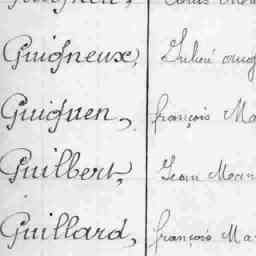 Guigneux, Julien
Guiguen, françois Ma
Guilbert, Jean Mar
Guillard, françois Ma